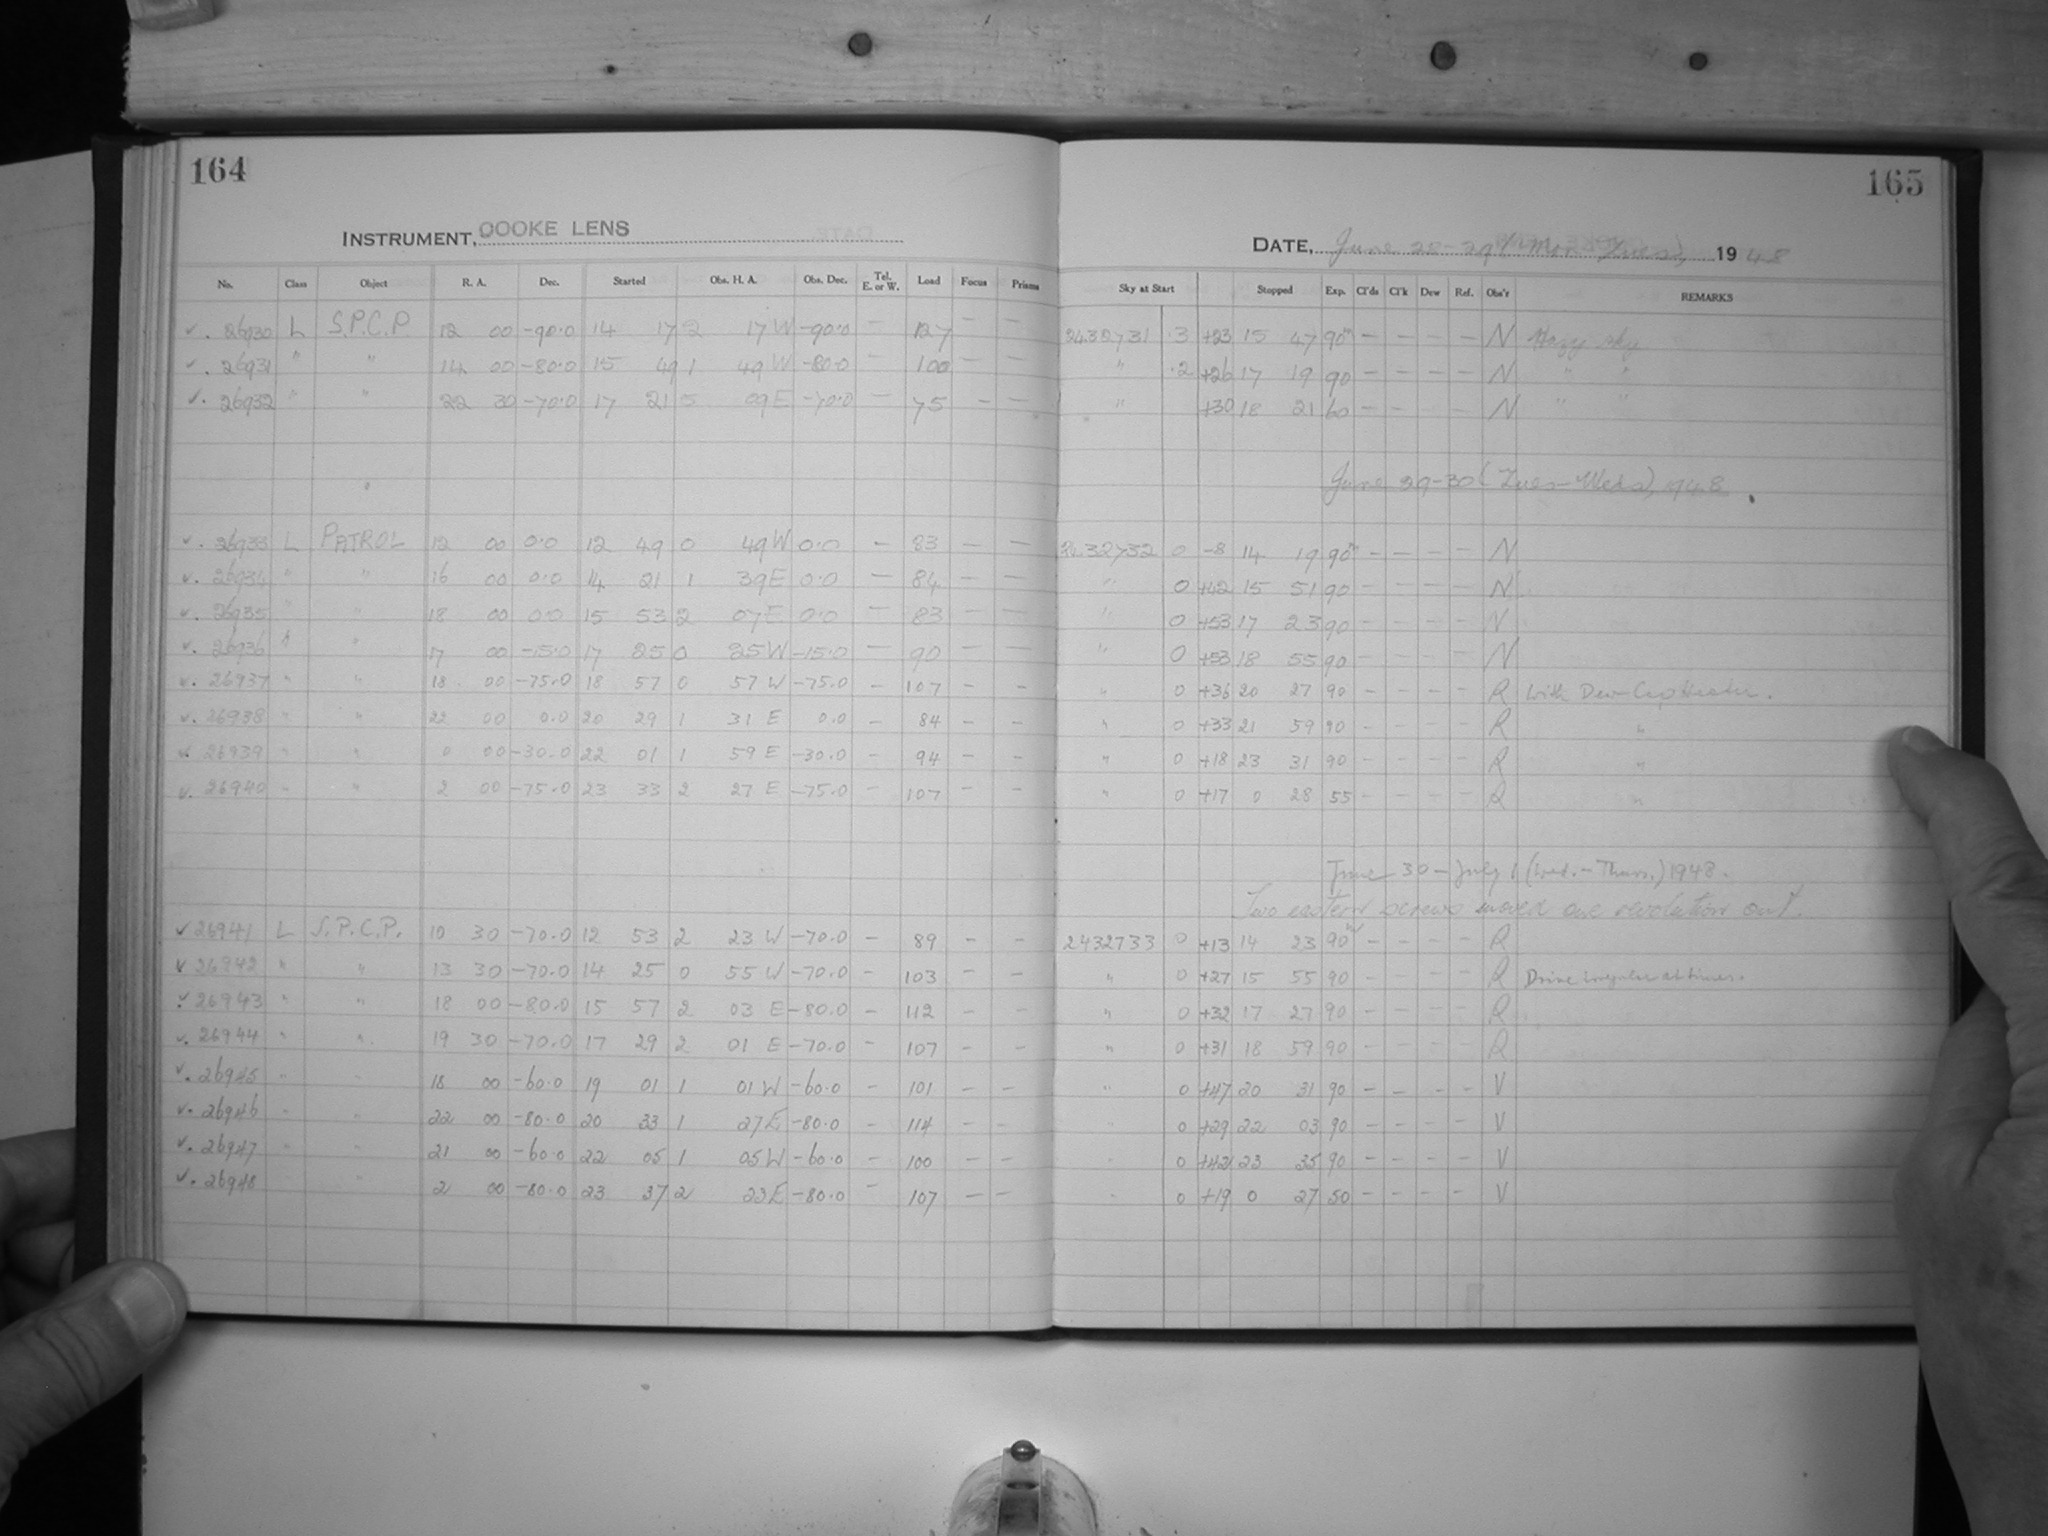 164
165
INSTRUMENT, COOKE LENS
DATE, June 28-29 (Mon-Tues), 1948
No. Class Object R. A. Dec. Started Obs. H. A. Obs. Dec. Tel. E. or W. Load Focus Prisms Sky at Start Stopped Exp. Cl'ds Cl'k Dew Ref. Obs'r REMARKS
✓. 26930 L S.P.C.P 12 00 -90.0 14 17 2 17 W -90.0 — 127 — — 2432731 .3 +23 15 47 90m — — — — N Hazy sky
✓. 26931 " " 14 00 -80.0 15 49 1 49 W -80.0 — 100 — — " .2 +26 17 19 90 — — — — N " "
✓. 26932 " " 22 30 -70.0 17 21 5 09 E -70.0 — 75 — — " +30 18 21 60 — — — — N " "
June 29-30 (Tues-Weds), 1948.
✓. 26933 L PATROL 12 00 0.0 12 49 0 49 W 0.0 — 83 — — 2432732 0 -8 14 19 90m — — — — N
✓. 26934 " " 16 00 0.0 14 21 1 39 E 0.0 — 84 — — " 0 +42 15 51 90 — — — — N
✓. 26935 " " 18 00 0.0 15 53 2 07 E 0.0 — 83 — — " 0 +53 17 23 90 — — — — N
✓. 26936 " " 17 00 -15.0 17 25 0 25 W -15.0 — 90 — — " 0 +53 18 55 90 — — — — N
✓. 26937 " " 18 00 -75.0 18 57 0 57 W -75.0 — 107 — — " 0 +36 20 27 90 — — — — R With Dew Cap Heater.
✓. 26938 " " 22 00 0.0 20 29 1 31 E 0.0 — 84 — — " 0 +33 21 59 90 — — — — R "
✓. 26939 " " 0 00 -30.0 22 01 1 59 E -30.0 — 94 — — " 0 +18 23 31 90 — — — — R "
✓. 26940 " " 2 00 -75.0 23 33 2 27 E -75.0 — 107 — — " 0 +17 0 28 55 — — — — R "
June 30 - July 1 (Wed. - Thurs.) 1948.
Two eastern screws moved one revolution out.
✓ 26941 L S.P.C.P. 10 30 -70.0 12 53 2 23 W -70.0 — 89 — — 2432733 0 +13 14 23 90m — — — — R
✓ 26942 " " 13 30 -70.0 14 25 0 55 W -70.0 — 103 — — " 0 +27 15 55 90 — — — — R Drive irregular at times.
✓ 26943 " " 18 00 -80.0 15 57 2 03 E -80.0 — 112 — — " 0 +32 17 27 90 — — — — R
✓. 26944 " " 19 30 -70.0 17 29 2 01 E -70.0 — 107 — — " 0 +31 18 59 90 — — — — R
✓. 26945 " " 18 00 -60.0 19 01 1 01 W -60.0 — 101 — — " 0 +47 20 31 90 — — — — V
✓. 26946 " " 22 00 -80.0 20 33 1 27 E -80.0 — 114 — — " 0 +29 22 03 90 — — — — V
✓. 26947 " " 21 00 -60.0 22 05 1 05 W -60.0 — 100 — — " 0 +42 23 35 90 — — — — V
✓. 26948 " " 2 00 -80.0 23 37 2 23 E -80.0 — 107 — — " 0 +19 0 27 50 — — — — V